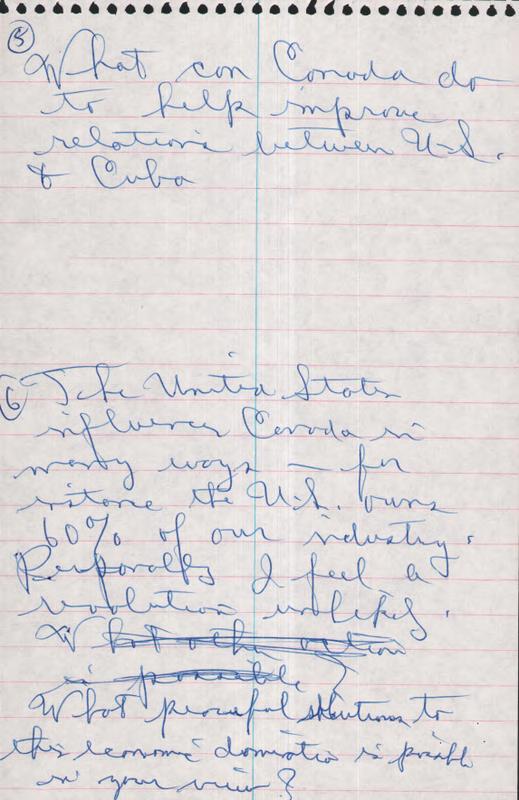 5
What can Canada do
to help improve
relations between U.S.
& Cuba
6 The United States
influences Canada in
many ways — for
instance the U.S. owns
60% of our industry.
Personally I feel a
revolution unlikely.
What other action
is possible
What peaceful solutions to
this economic domination is possible
in your view?